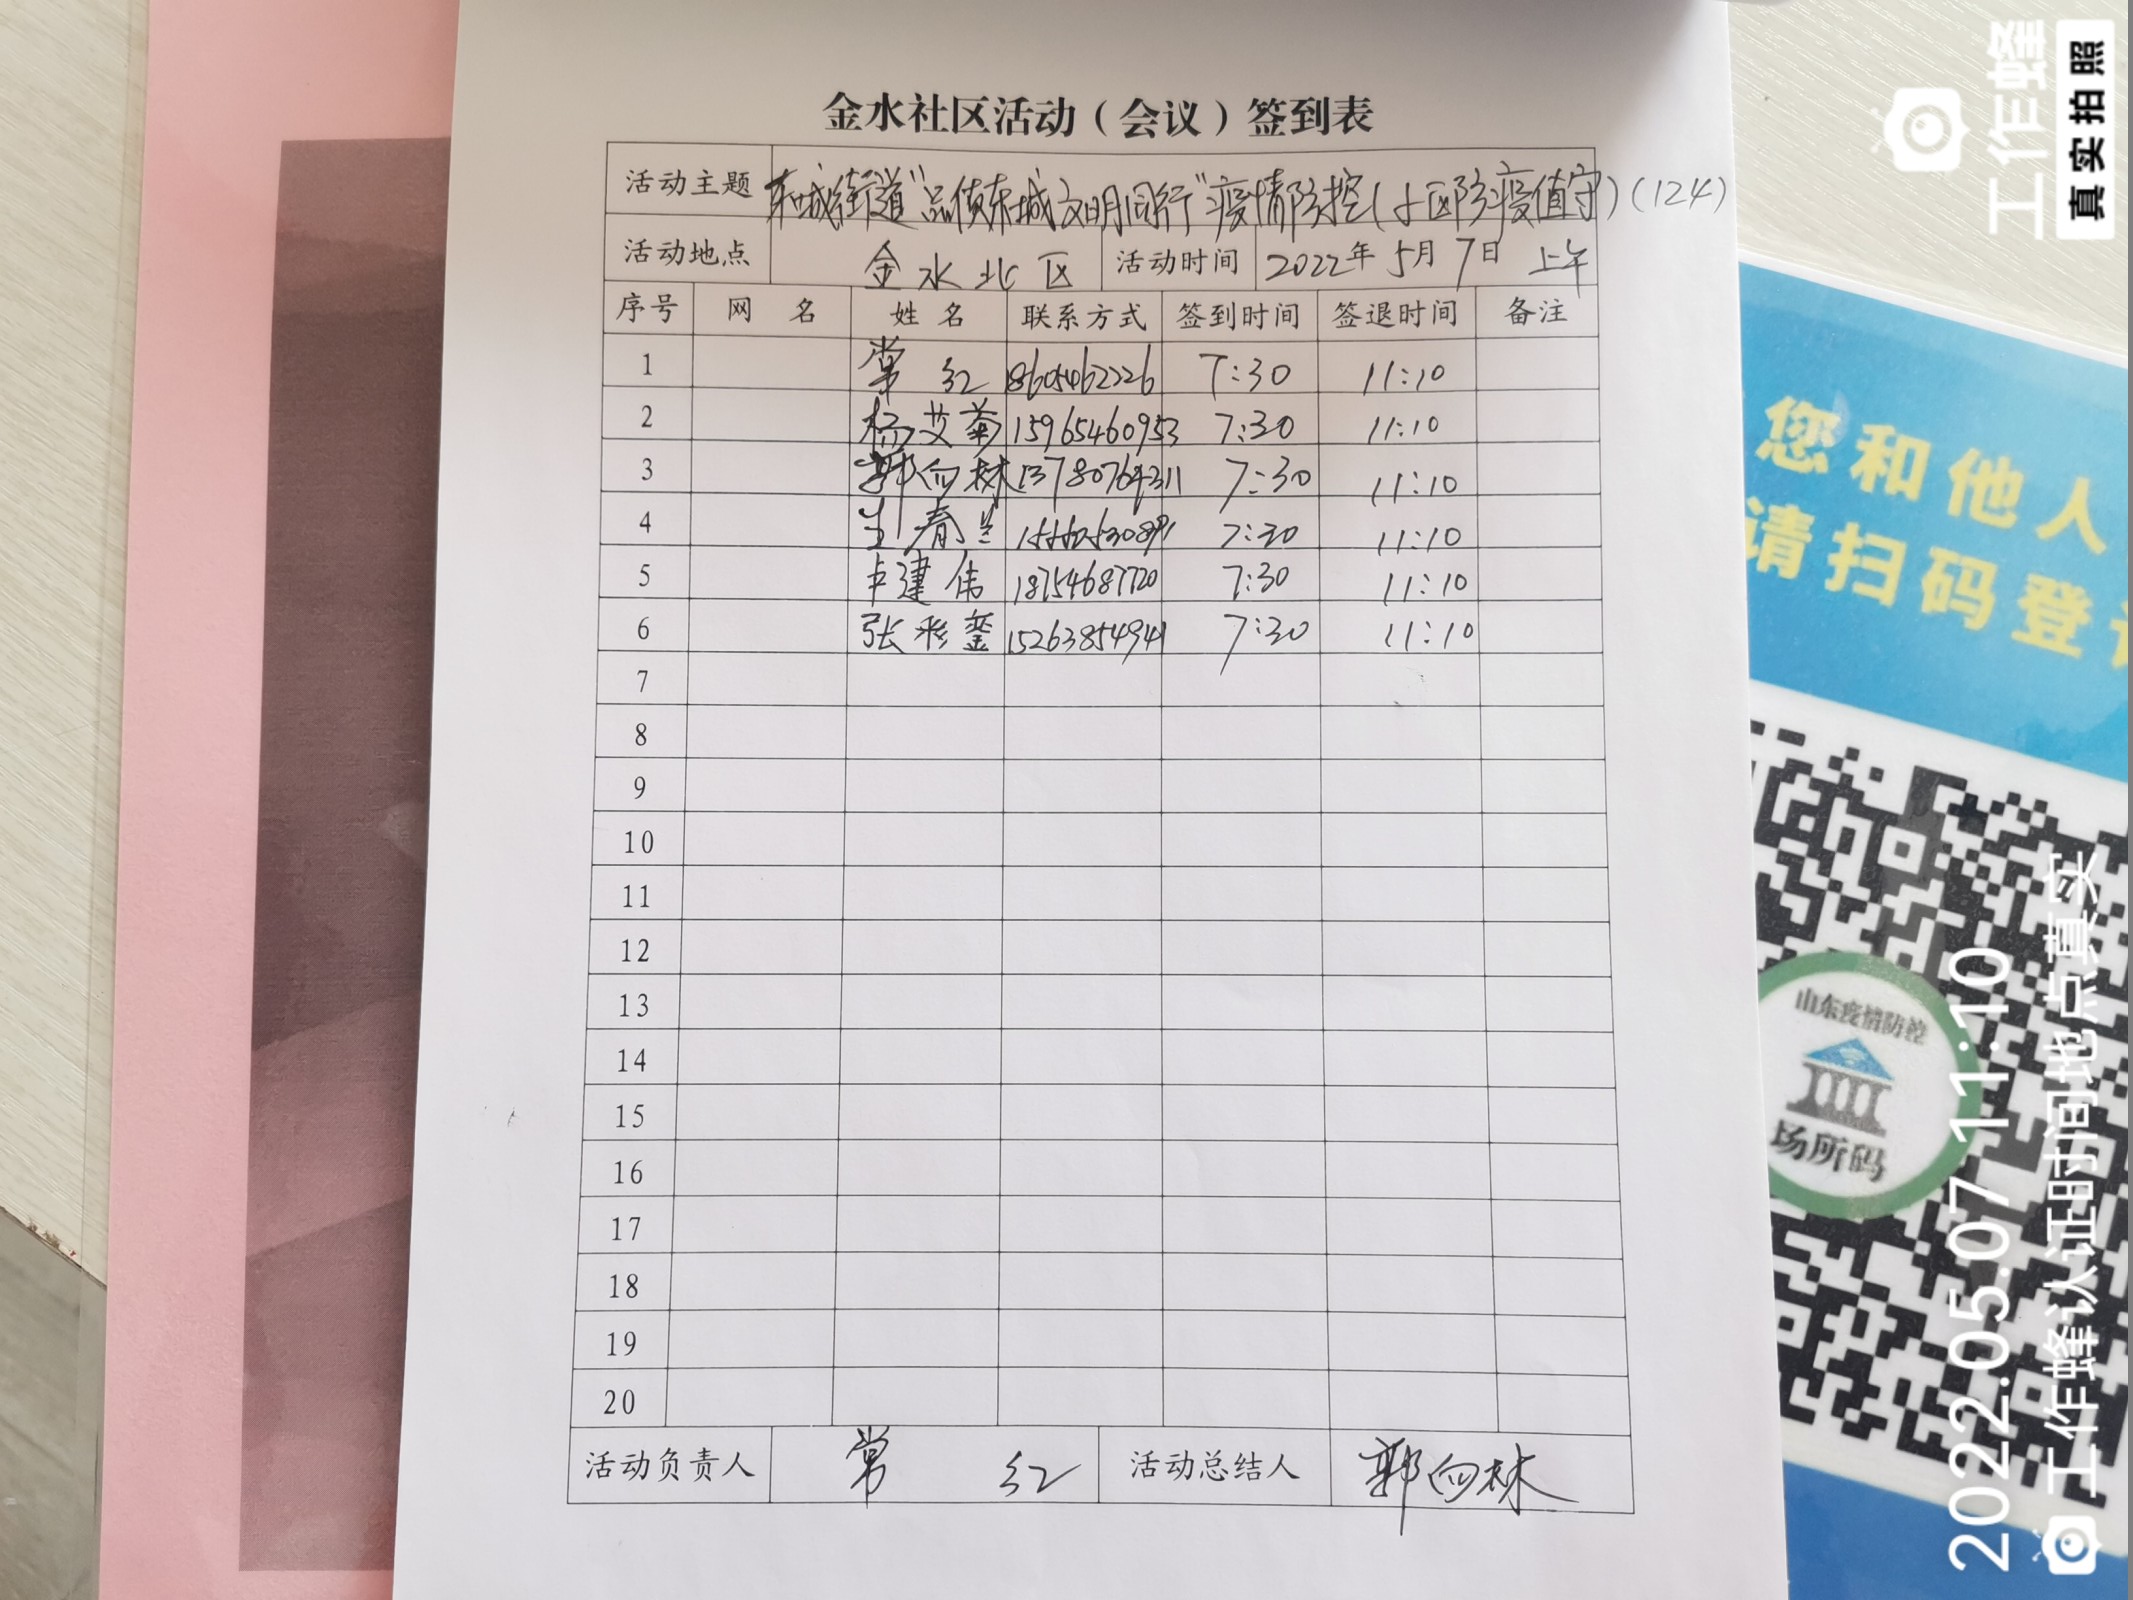 金水社区活动（会议）签到表
活动主题 东城街道“品质东城文明同行”疫情防控(小区防疫值守)(124)
活动地点 金水北区 活动时间 2022年5月7日 上午
序号 网 名 姓 名 联系方式 签到时间 签退时间 备注
1 常红 18605462226 7:30 11:10
2 杨艾菊 15965460953 7:30 11:10
3 郭向林 13780764311 7:30 11:10
4 春兰 7:30 11:10
5 卢建伟 18754687720 7:30 11:10
6 张彩銮 15263854941 7:30 11:10
7
8
9
10
11
12
13
14
15
16
17
18
19
20
活动负责人 常红 活动总结人 郭向林
您和他人
请扫码登
山东疫情防控
场所码
工作蜂
真实拍照
2022.05.07 11:10
工作蜂认证时间地点真实